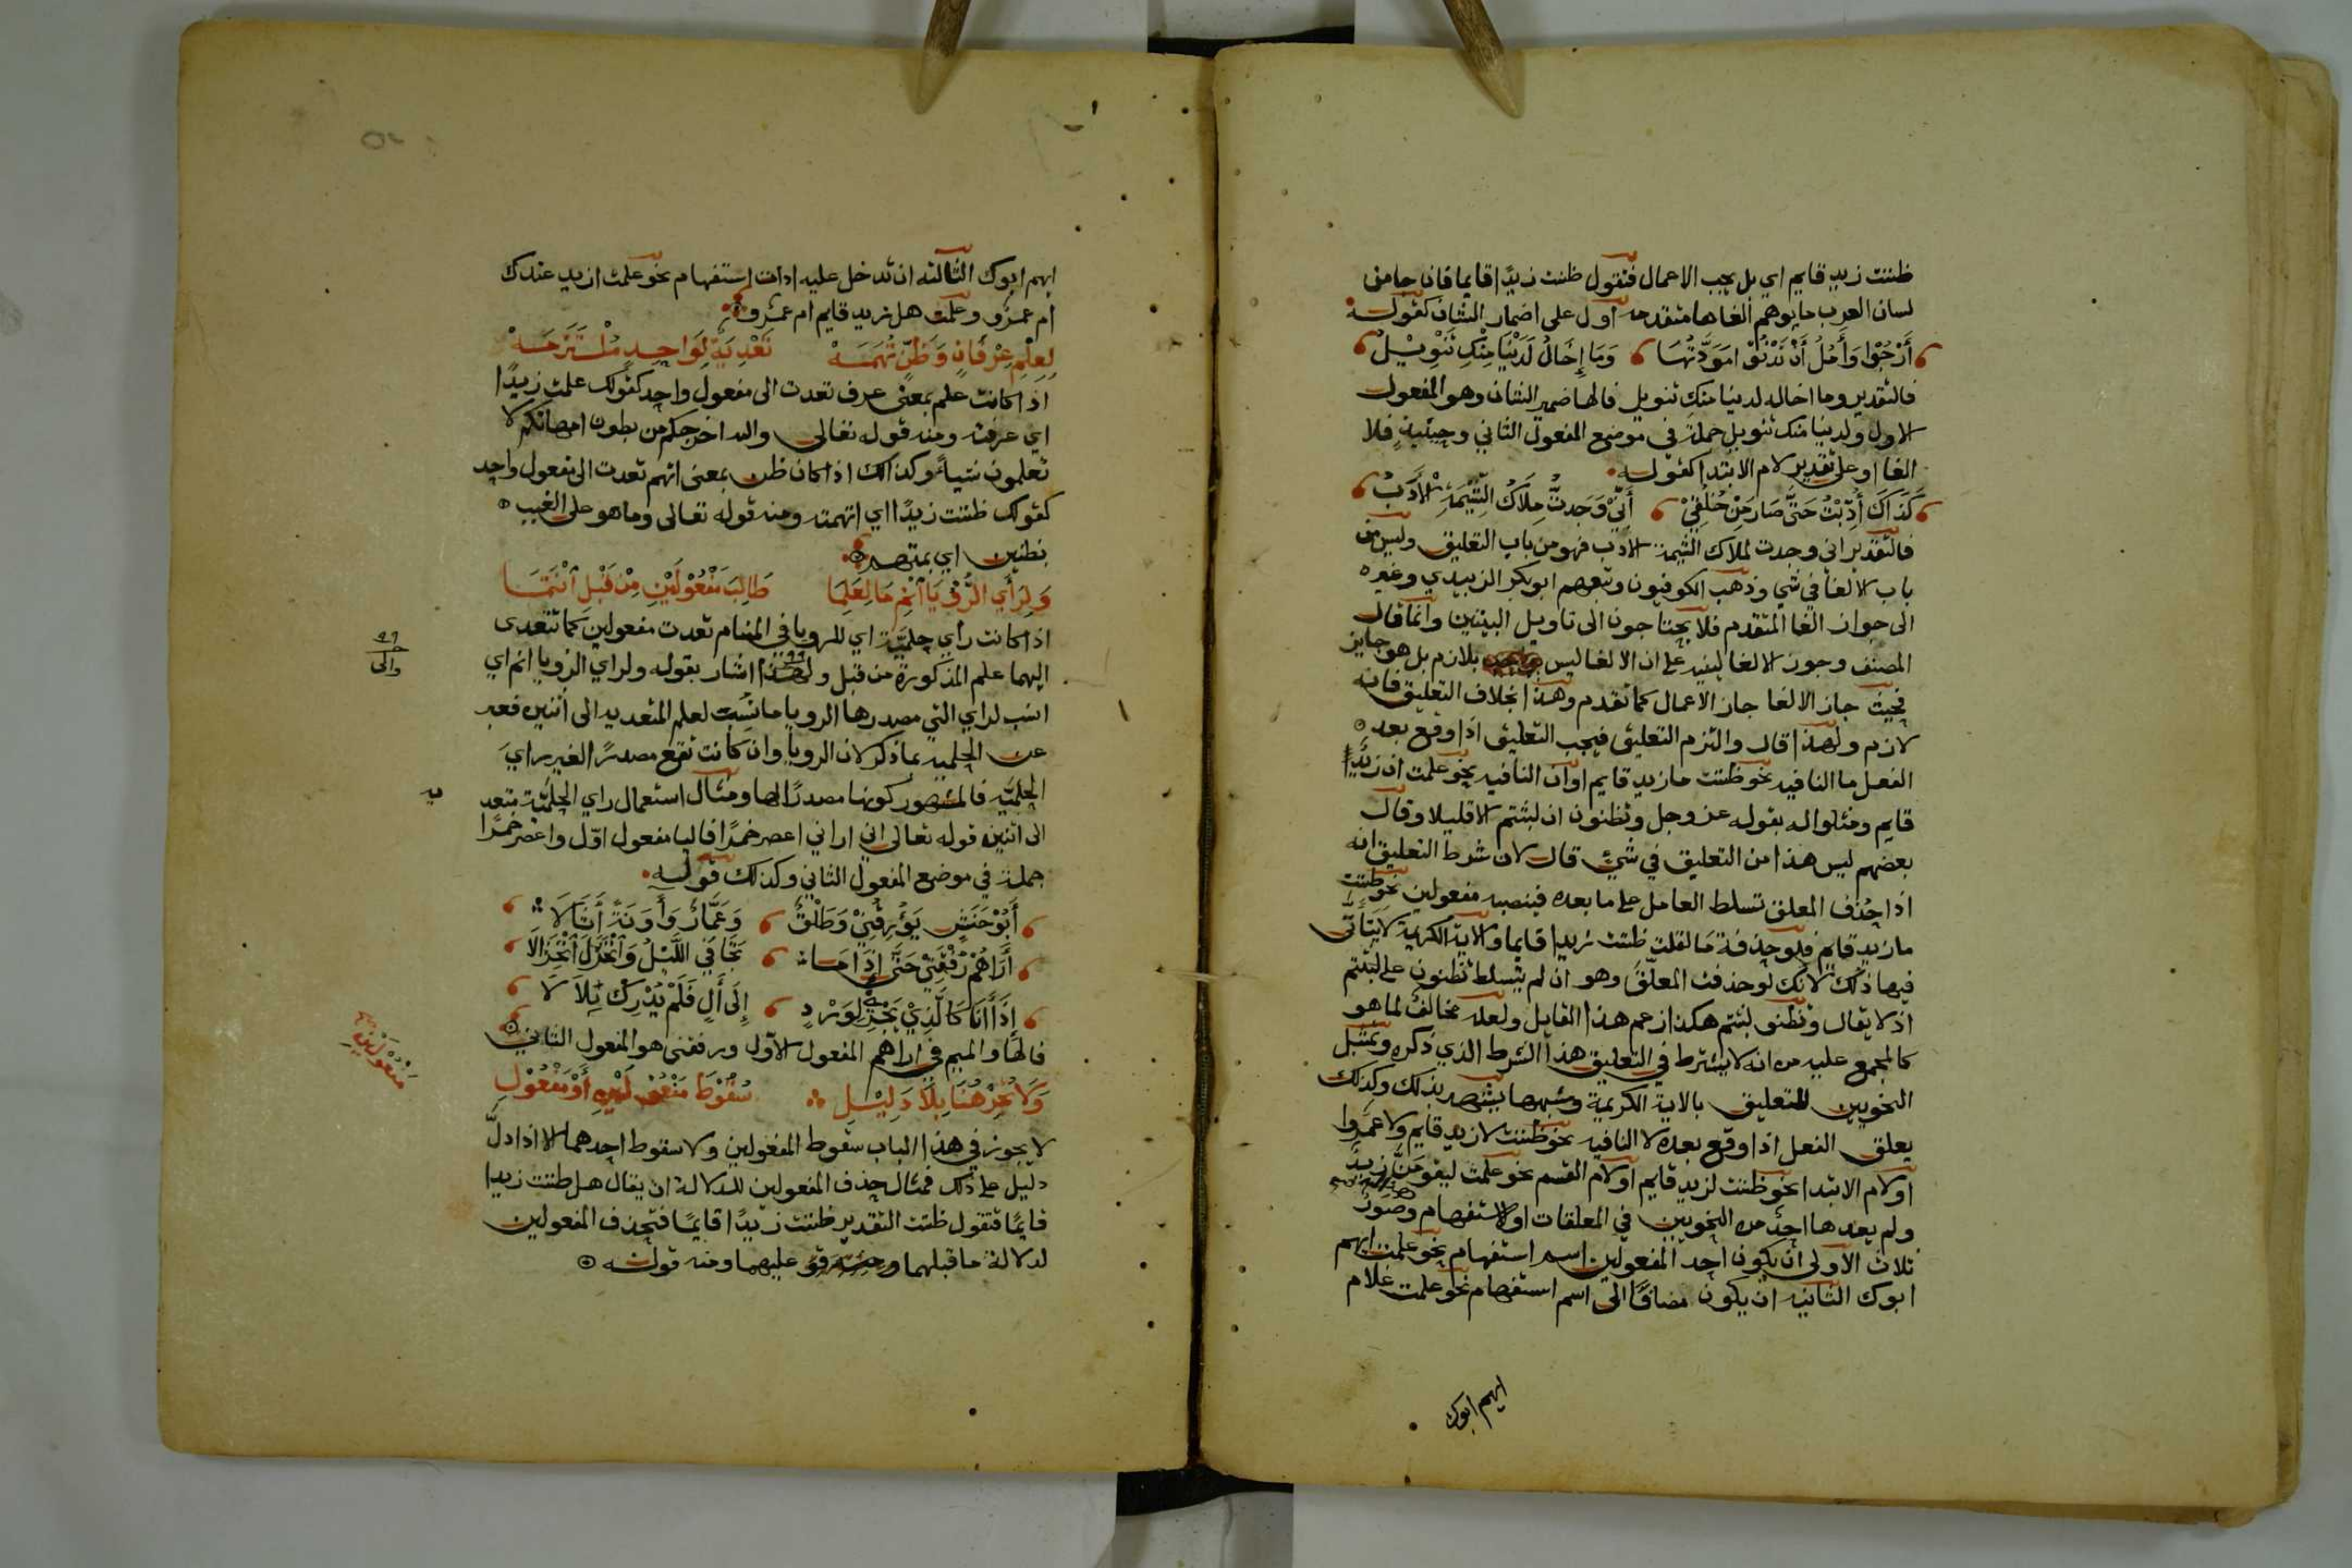 ظننت زيد قايم اي بل يجب الاعمال فتقول ظننت زيدًا قايما فان جا من
لسان العرب ما يوهم الغاها متقدمه اول على اضمار الشان كقوله
أَرْجُوْا وَأَمُلُ أَنْ تَدْنُوْا مَوَدَّتُهَا وَمَا إِخَالُ لَدَيْنَا مِنْكِ تَنْوِيْلُ
فالتقدير وما اخاله لدينا منك تنويل فالها ضمير الشان وهو المفعول
الاول ولدينا منك تنويل جملة في موضع المفعول الثاني وحينيذ فلا
الغا او على تقدير لام الابتدا كقوله
كَذَاكَ أُدِّبْتُ حَتَّى صَارَ مِنْ خُلُقِيْ أَنِّيْ وَجَدتُّ مِلَاكُ الشِّيْمَةِ الأَدَبُ
فالتقدير اني وجدت لملاك الشيمة الادب فهو من باب التعليق وليس من
باب الالغا في شي وذهب الكوفيون وتبعهم ابو بكر الزبيدي وغيره
الى جواز الغا المتقدم فلا يحتاجون الى تاويل البيتين وانما قال
المصنف وجوز الالغا ليفيد على ان الالغا ليس بلازم بل هو جايز
فحيث جاز الالغا جاز الاعمال كما تقدم وهذا بخلاف التعليق فانه
لازم ولهذا قال والتزم التعليق فيجب التعليق اذا وقع بعد
الفعل ما النافيه نحو ظننت ما زيد قايم او ان النافيه نحو علمت ان زيدًا
قايم ومثلوا له بقوله عز وجل وتظنون ان لبثتم الا قليلا وقال
بعضهم ليس هذا من التعليق في شيٍ قال لان شرط التعليق انه
اذا حذف المعلق تسلط العامل على ما بعده فينصب مفعولين نحو ظننت
ما زيد قايم فلو حذفة ما لقلت ظننت زيدا قايما والاية الكريمة لا يتأتى
فيها ذلك لانك لو حذفت المعلق وهو ان لم يتسلط تظنون على لبثتم
اذ لا يقال وتظنو لبثتم هكذا زعم هذا القايل ولعله مخالف لما هو
كالمجمع عليه من انه لا يشترط في التعليق هذا الشرط الذي ذكره وتمثيل
النحويين للتعليق بالاية الكريمة وشبهها يشهد بذلك وكذلك
يعلق الفعل اذا وقع بعده لا النافيه نحو ظننت لا زيد قايم ولا عمروا
او لام الابتدا نحو ظننت لزيد قايم او لام القسم نحو علمت ليقومَنَّ زيدٌ
ولم يعدها احدٌ من النحويين في المعلقات او الاستفهام وصور
ثلاث الاولى ان يكون احد المفعولين اسم استفهام نحو علمت ايهم
ابوك الثانيه ان يكون مضافًا الى اسم استفهام نحو علمت غلام
ايهم ابوك
ايهم ابوك الثالثه ان تدخل عليه ادات استفهام نحو علمت ازيد عندك
ام عمرٌو وعلمت هل زيد قايم ام عمرو
لِعِلْمِ عِرْفَانٍ وَظَنِّ تُهَمَهْ تَعْدِيَةٌ لِوَاحِدٍ مُلْتَزَمَهْ
اذا كانت علم بمعنى عرف تعدت الى مفعول واحد كقولك علمت زيدًا
اي عرفته ومنه قوله تعالى والله اخرجكم من بطون امهاتكم لا
تعلمون شيأ وكذالك اذا كان ظن بمعنى اتهم تعدت الى مفعول واحد
كقولك ظننت زيدًا اي اتهمته ومنه قوله تعالى وما هو على الغيب
بظنين اي بمتهم
وَلِرَأَي الرُّؤْيَا انْمِ مَا لِعَلِمَا طَالِبَ مَفْعُوْلَيْنِ مِنْ قَبْلُ انْتَمَا
اذا كانت رأي حلميَّة اي للرويا في المنام تعدت مفعولين كما تتعدى
اليهما علم المذكورة من قبل ولهذا اشار بقوله ولراي الرويا انم اي
انسب لراي التي مصدرها الرويا ما نسبت لعلم المتعديه الى اثنين فعبر
عن الحلميه بما ذكر لان الرويا وان كانت تقع مصدرًا لغير راي
الحلميَّه فالمشهور كونها مصدرًا لها ومثال استعمال راي الحلميَّة متعد
الى اثنين قوله تعالى اني اراني اعصر خمرًا فاليا مفعول اوّل واعصر خمرًا
جملة في موضع المفعول الثاني وكذلك قوله
أَبُوْ حَنَشٍ يُؤَرِقُنِيْ وَطَلْقٌ وَعَمَّارٌ وَأَوِنَةً أُثَالَا
أَرَاهُمْ رُفْقَتِيْ حَتَّى إِذَا مَا تَجَافَي اللَّيْلُ وَانْخَزَلَ انْخِزَالَا
إِذَا أَنَا كَالَّذِيْ يَجْرِيْ لِوَرْدٍ إِلَى أَلٍ فَلَمْ يُدْرِكْ بِلَالَا
فالها والميم في اراهم المفعول الاوّل ورفقتي هو المفعول الثاني
وَلَا تُجِزْ هُنَا بِلَا دَلِيْلِ سُقُوْطَ مَفْعُوْلَيْنِ أَوْ مَفْعُوْلِ
لا يجوز في هذا الباب سقوط المفعولين ولا سقوط احدهما الا اذا دلَّ
دليل على ذلك فمثال حذف المفعولين للدلالة ان يقال هل ظننت زيدا
قايمًا فتقول ظننت التقدير ظننت زيدًا قايمًا فتحذف المفعولين
لدلالة ما قبلهما عليهما ومنه قوله
والى
يه
مَفْعُوْلَيْنِ